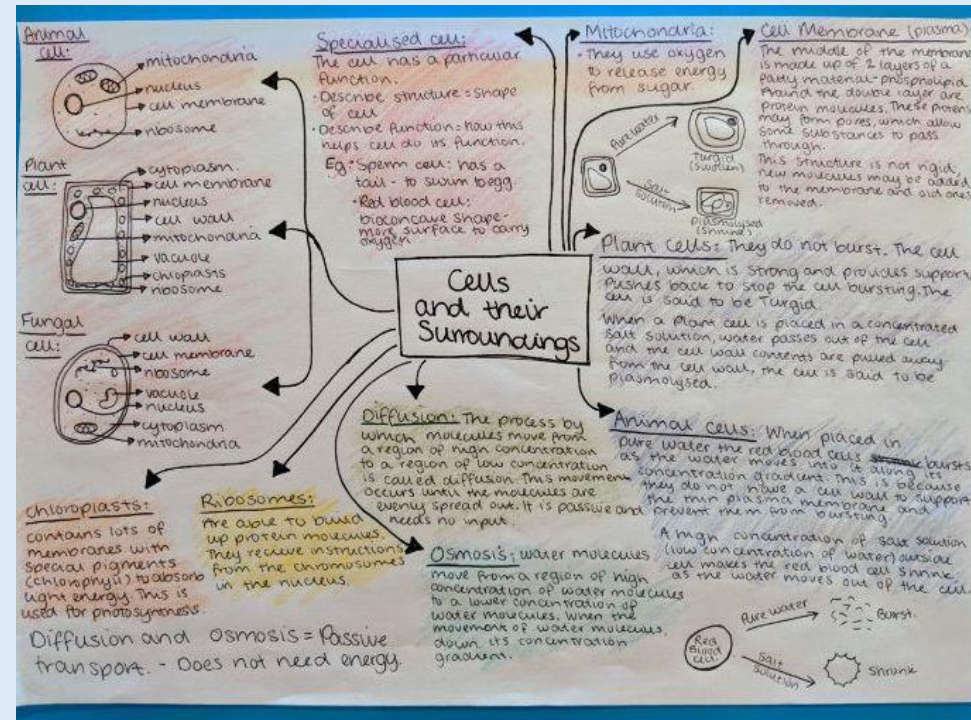 Animal
cell:
mitochondria
nucleus
cell membrane
ribosome
Plant
cell:
cytoplasm
cell membrane
nucleus
cell wall
mitochondria
vacuole
chloroplasts
ribosome
Fungal
cell:
cell wall
cell membrane
ribosome
vacuole
nucleus
cytoplasm
mitochondria
Specialised cell:
The cell has a particular
function.
• Describe structure = shape
of cell
• Describe function = how this
helps cell do its function.
Eg: • Sperm cell: has a
tail - to swim to egg.
• Red blood cell:
bioconcave shape-
more surface to carry
oxygen
Mitochondria:
• They use oxygen
to release energy
from sugar.
Pure water
Turgid
(swollen)
Salt
solution
Plasmolysed
(shrunk)
Cell Membrane (plasma)
The middle of the membrane
is made up of 2 layers of a
fatty material - phospholipid.
Around the double layer are
protein molecules. These protein
may form pores, which allow
some substances to pass
through.
This structure is not rigid,
new molecules may be added
to the membrane and old ones
removed.
Cells
and their
Surroundings
Plant Cells: They do not burst. The cell
wall, which is strong and provides support,
pushes back to stop the cell bursting. The
cell is said to be Turgid.
When a plant cell is placed in a concentrated
salt solution, water passes out of the cell
and the cell wall contents are pulled away
from the cell wall, the cell is said to be
plasmolysed.
Animal cells: When placed in
pure water the red blood cells bursts
as the water moves into it along its
concentration gradient. This is because
they do not have a cell wall to support
the thin plasma membrane and
prevent them from bursting
A high concentration of salt solution
(low concentration of water) outside
cell makes the red blood cell shrink
as the water moves out of the cell.
Red
Blood
cell.
Pure water
Burst.
Salt
solution
Shrunk
Diffusion: The process by
which molecules move from
a region of high concentration
to a region of low concentration
is called diffusion. This movement
occurs until the molecules are
evenly spread out. It is passive and
needs no input.
Osmosis: water molecules
move from a region of high
concentration of water molecules
to a lower concentration of
water molecules. When the
movement of water molecules,
down its concentration
gradient.
Chloroplasts:
contains lots of
membranes with
special pigments
(chlorophyll) to absorb
light energy. This is
used for photosynthesis.
Ribosomes:
Are able to build
up protein molecules.
They recieve instructions
from the chromosomes
in the nucleus.
Diffusion and Osmosis = Passive
transport. - Does not need energy.